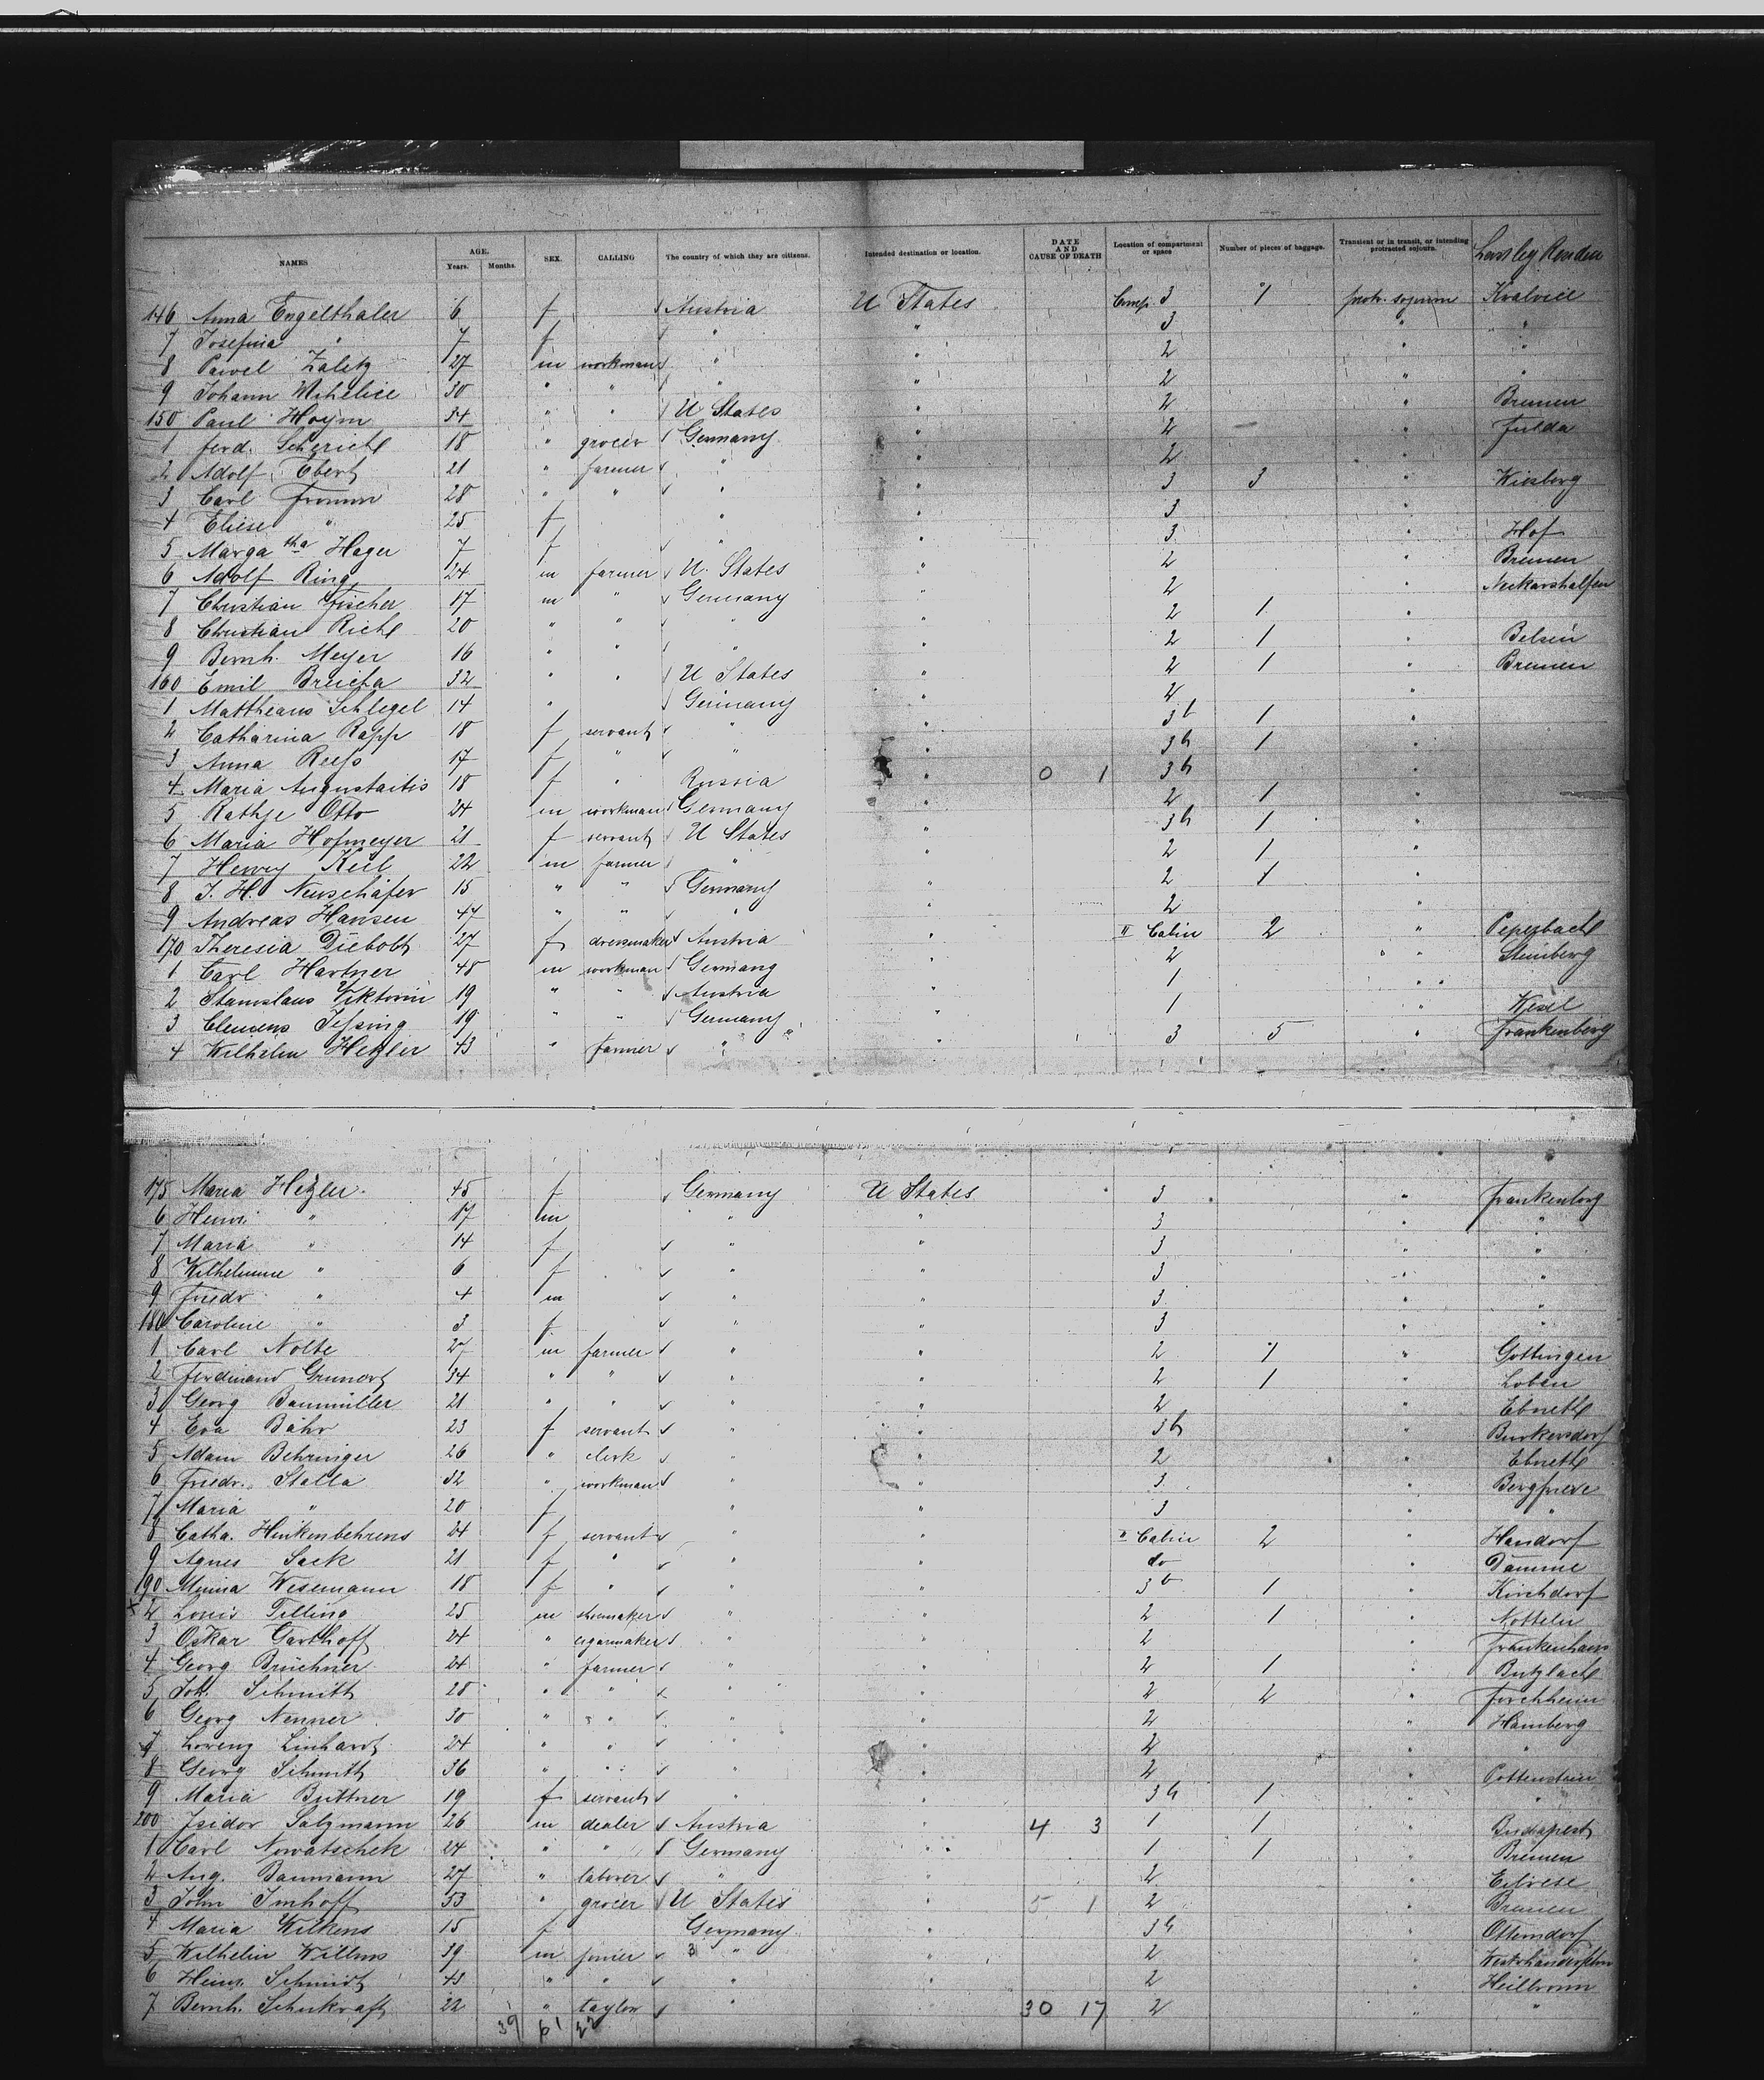 NAMES AGE. Years. Months. SEX. CALLING The country of which they are citizens. Intended destination or location. DATE AND CAUSE OF DEATH Location of compartment or space Number of pieces of baggage. Transient or in transit, or intending protracted sojourn.
146 Anna Engelthaler 6 f Austria U States Comp. 3 1 protr. sojourn
7 Josefina " 7 f " " 3 " "
8 Pawel Zaletz 27 m workman " " 2 " "
9 Johann Mihelice 30 " " " " 2 " "
150 Paul Hoym 34 " " U States " 2 " Bremen
1 Ferd. Scherich 18 " grocer Germany " 2 " Fulda
2 Adolf Ebert 21 " farmer " " 2 "
3 Carl Fromm 28 " " " " 3 3 " Wiesberg
4 Eliese " 25 f " " 3
5 Marga tha Hager 7 f " " 3 " Hof
6 Adolf Ring 24 m farmer U. States " 2 " Bremen
7 Christian Fischer 17 m " Germany " 2 "
8 Christian Riehl 20 " " " " 2 1 "
9 Bernh. Meyer 16 " " " " 2 1 " Belsen
160 Emil Breicha 32 " " U States " 2 1 " Bremen
1 Mattheaus Schlegel 14 " Germany " 2 "
2 Catharina Rapp 18 f servant " " 3b 1 "
3 Anna Reess 17 f " " " 3b 1 "
4 Maria Augustaitis 18 f " Russia " 0 1 3b "
5 Rathje Otto 24 m workman Germany " 2 1 "
6 Maria Hofmeyer 21 f servant U States " 3b 1 "
7 Henry Keil 22 m farmer " " 2 1 "
8 J. H. Neuschäfer 15 " " Germany " 2 1 "
9 Andreas Hansen 47 " " " " 2 "
170 Theresia Diebolt 27 f dressmaker Austria " II Cabin 2 " Peperbach
1 Carl Hartner 48 m workman Germany " 2 " Steinberg
2 Stanislaus Viktorin 19 " " Austria " 1 "
3 Clemens Jessing 19 " " Germany " 1 " Wesel
4 Wilhelm Hetzler 43 " farmer " " 3 5 " Frankenberg
175 Maria Hetzler 45 f Germany U States 3 " Frankenberg
6 Henri " 17 m " " 3 " "
7 Maria " 14 f " " 3 " "
8 Wilhelmine " 6 f " " 3 " "
9 Friedr " 4 m " " 3 " "
180 Caroline " 3 f " " 3 " "
1 Carl Nolte 27 m farmer " " 2 1 " Gottingen
2 Ferdinand Grunert 34 " " " " 2 1 " Loben
3 Georg Baumüller 21 " " " " 2 Ebneth
4 Eva Bähr 23 f servant " " 3b " Burkersdorf
5 Adam Behringer 26 " clerk " " 2 " Ebneth
6 Friedr. Stalla 32 " workman " " 3 " Bergfriede
7 Maria " 20 f " " 3 "
8 Catha. Heukenbehrens 24 f servant " " II Cabin 2 " Handorf
9 Agnes Sack 21 f " " " do " Damme
190 Minna Wesemann 18 f " " " 3b 1 " Kirchdorf
2 Louis Tilling 25 m shoemaker " " 2 1 " Notteln
3 Oskar Garthoff 24 " cigarmaker " " 2 " Frankenhaus
4 Georg Brüchner 24 " farmer " " 2 1 " Butzbach
5 Joh. Schmitt 28 " " " " 2 2 " Forchheim
6 Georg Nenner 30 " " " " 2 " Hamberg
7 Lorenz Linhardt 24 " " " " 2 " "
8 Georg Schmitt 36 " " " " 2 " Pottenstein
9 Maria Büttner 19 f servant " " 3b 1 " "
200 Isidor Salzmann 26 m dealer Austria " 4 3 1 1 " Budapest
1 Carl Nowatschek 24 " " Germany " 1 1 " Bremen
2 Aug. Baumann 27 " laborer " " 2 " Eilvese
3 John Imhoff 53 " grocer U States " 5 1 2 " Bremen
4 Maria Wilkens 15 f Germany " 3b " Otterndorf
5 Wilhelm Willms 39 m " " 2 "
6 Heinr. Schmidt 43 " " " " 2 " Heilbronn
7 Bernh. Schukraft 22 " taylor " 30 17 2 " "
39 61 22